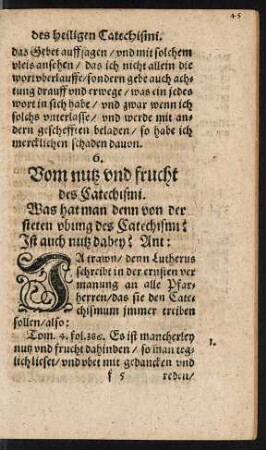 45
des heiligen Catechismi.
das Gebet auffsagen / vnd mit solchem
vleis ansehen / das ich nicht allein die
wort vberlauffe / sondern gebe auch ach-
tung drauff vnd erwege / was ein jedes
wort in sich habe / vnd zwar wenn ich
solchs vnterlasse / vnd werde mit an-
dern geschefften beladen / so habe ich
mercklichen schaden dauon.
6.
Vom nutz vnd frucht
des Catechismi.
Was hat man denn von der
steten vbung des Catechismi?
Ist auch nutz dabey? Ant:
JA trawn / denn Lutherus
schreibt in der ernsten ver
manung an alle Pfar-
herren / das sie den Cate
chismum jmmer treiben
sollen / also:
Tom. 4. fol. 386. Es ist mancherley
nutz vnd frucht dahinden / so man teg-
lich lieset / vnd vbet mit gedancken vnd
1.
f 5 reden /